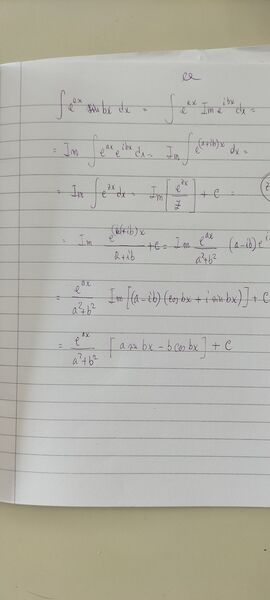 ∫ e^{ax} sin bx dx = ∫ e^{ax} Im e^{ibx} dx =
= Im ∫ e^{ax} e^{ibx} dx = Im ∫ e^{(a+ib)x} dx =
= Im ∫ e^{zx} dx = Im [e^{zx}/z] + C =
= Im e^{(a+ib)x}/(a+ib) + C = Im e^{ax}/(a²+b²) (a-ib) e
= e^{ax}/(a²+b²) Im[(a-ib)(cos bx + i sin bx)] + C
= e^{ax}/(a²+b²) [a sin bx - b cos bx] + C